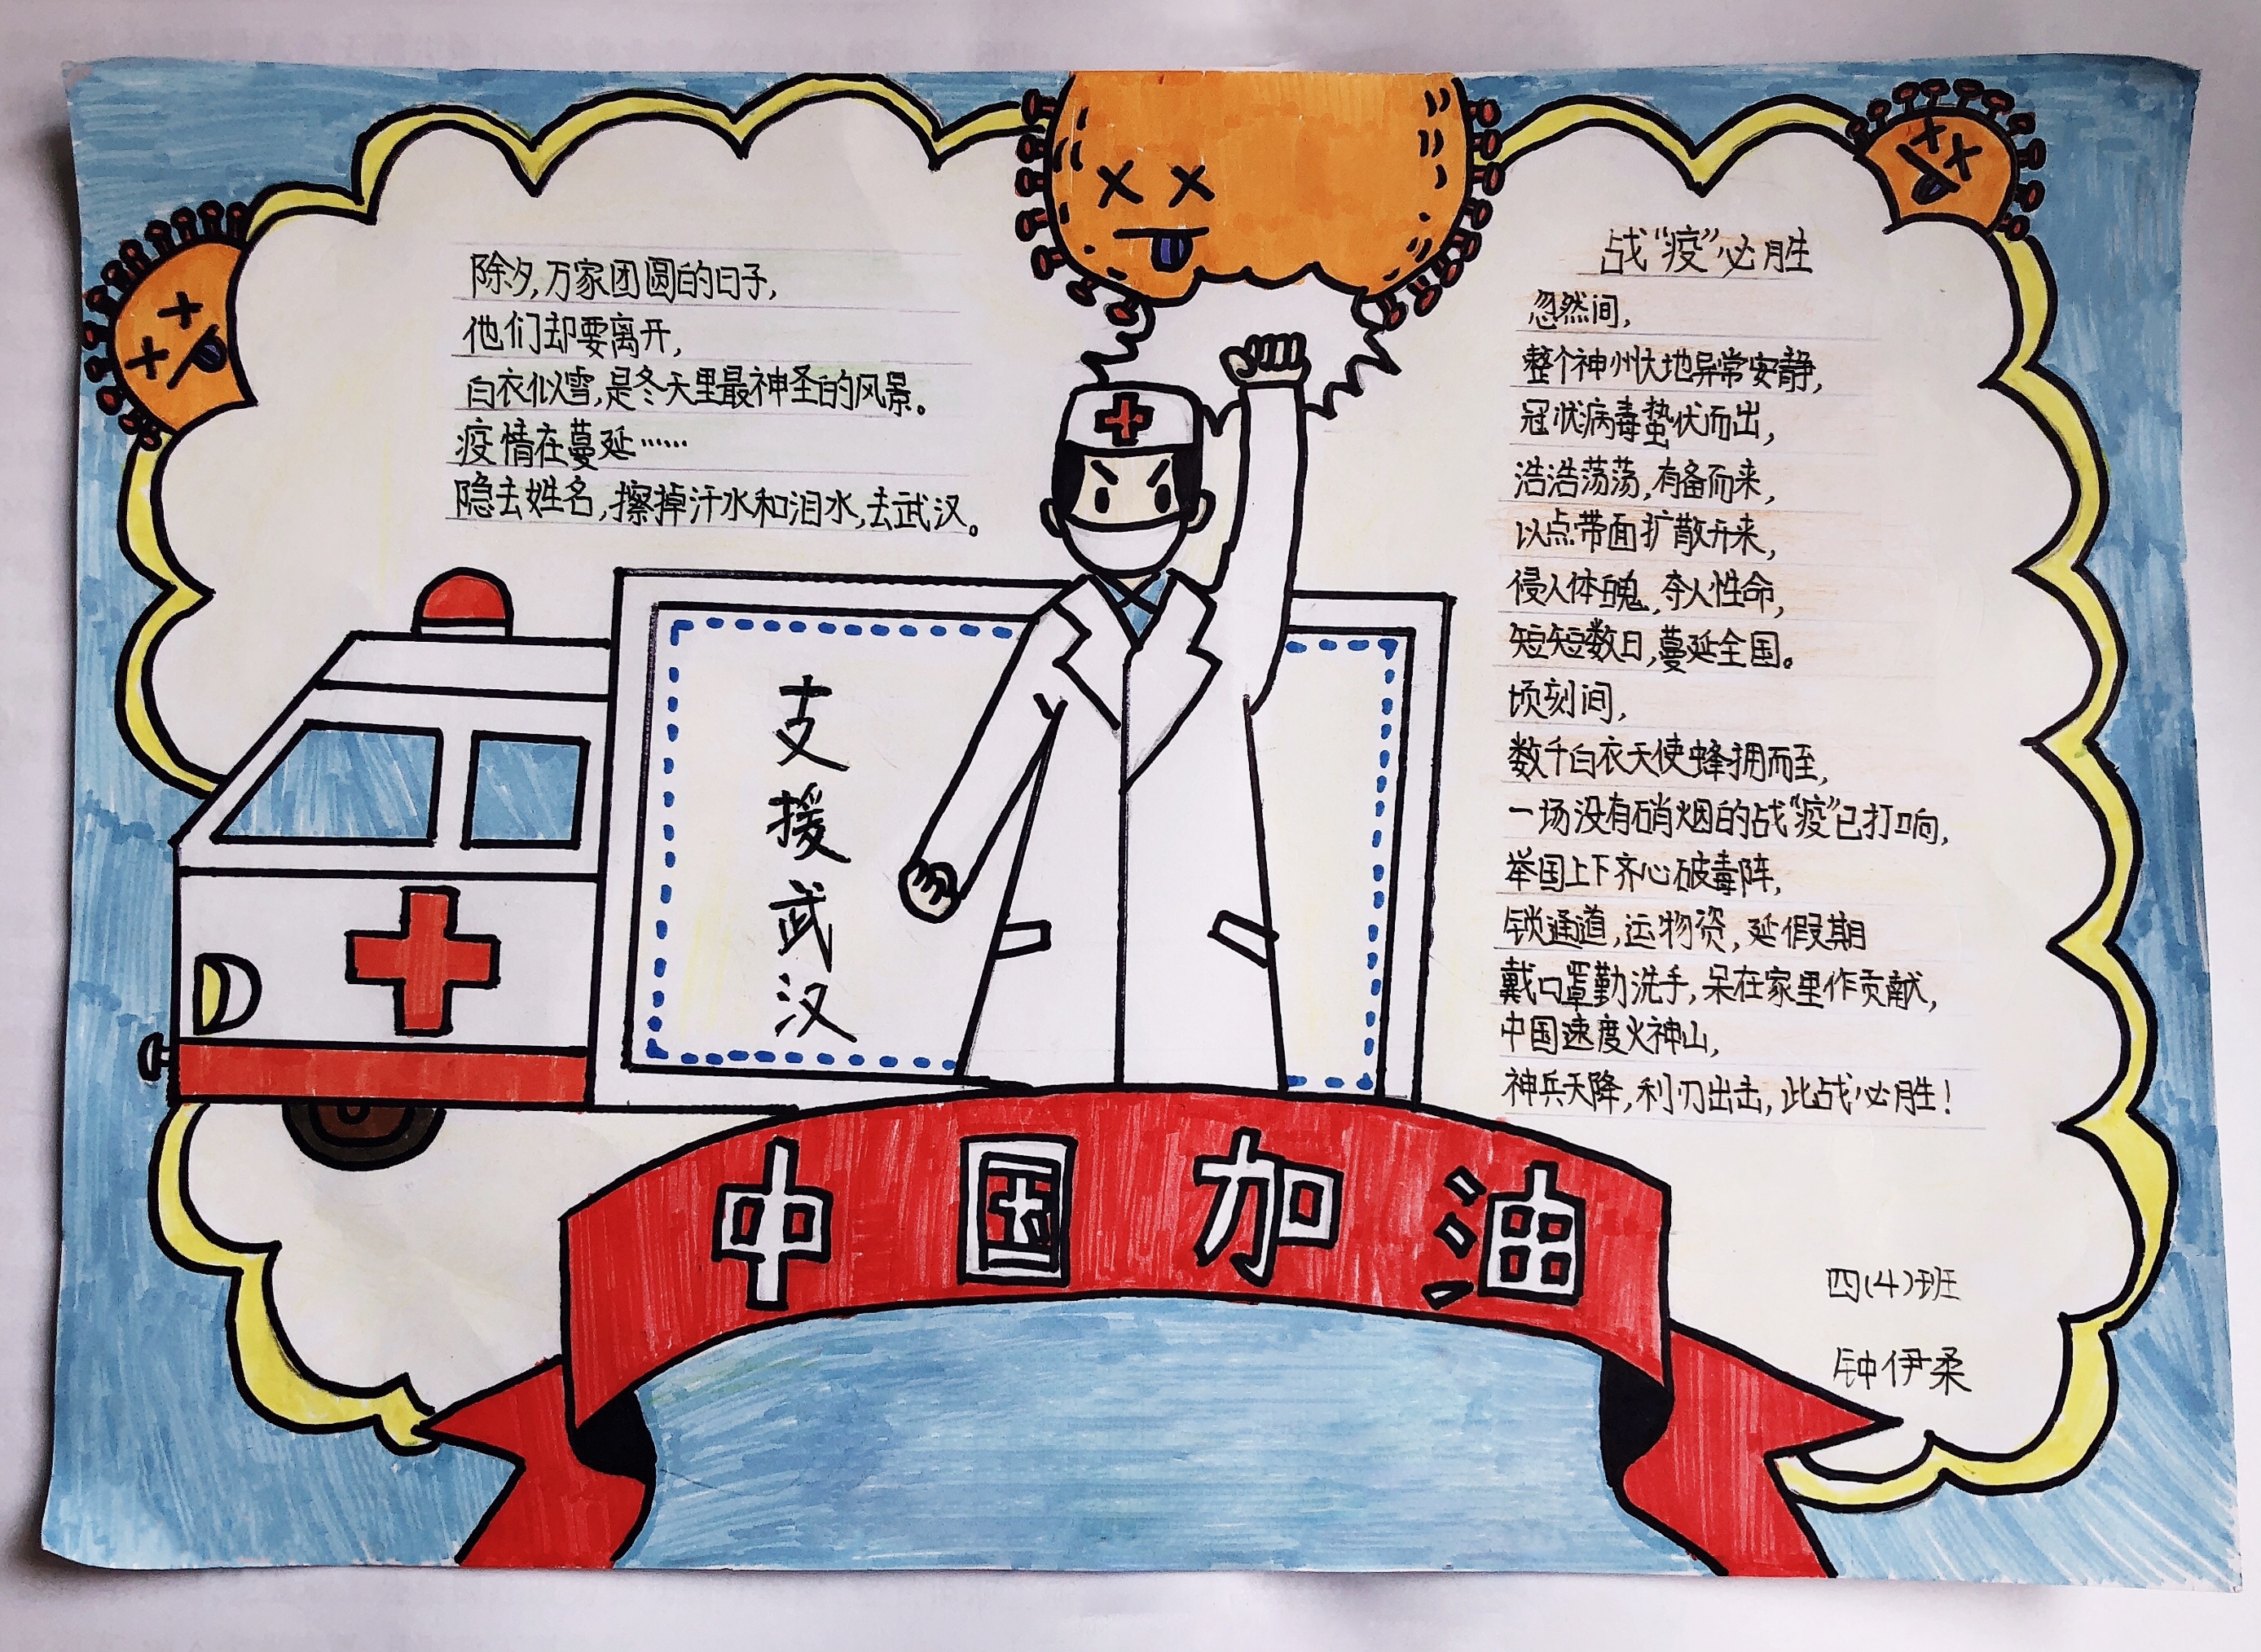 除夕,万家团圆的日子,
他们却要离开,
白衣似雪,是冬天里最神圣的风景。
疫情在蔓延……
隐去姓名,擦掉汗水和泪水,去武汉。
支援武汉
战“疫”必胜
忽然间,
整个神州大地异常安静,
冠状病毒蛰伏而出,
浩浩荡荡,有备而来,
以点带面扩散开来,
侵人体魄,夺人性命,
短短数日,蔓延全国。
顷刻间,
数千白衣天使蜂拥而至,
一场没有硝烟的战“疫”已打响,
举国上下齐心破毒阵,
锁通道,运物资,延假期
戴口罩勤洗手,呆在家里作贡献,
中国速度火神山,
神兵天降,利刃出击,此战必胜!
中国加油
四(4)班
钟伊柔